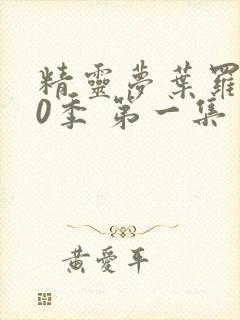 精靈夢葉羅
0季 第一集
黃愛平